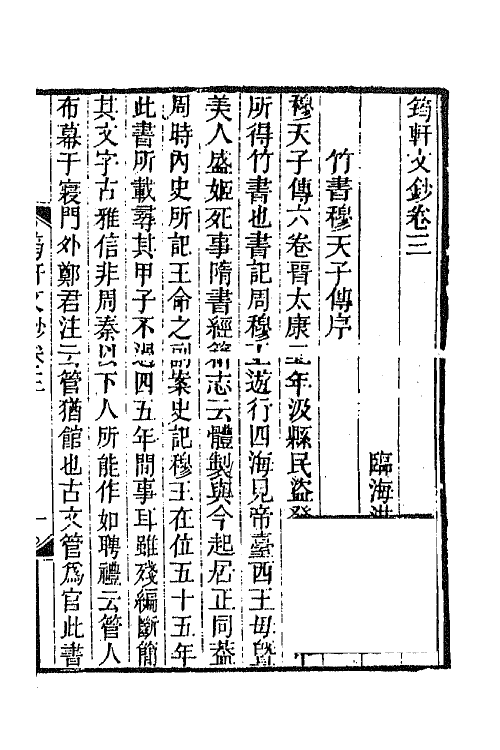 筠軒文鈔卷三
臨海洪
竹書穆天子傳序
穆天子傳六卷晉太康二年汲縣民盜發
所得竹書也書記周穆王遊行四海見帝臺西王母暨
美人盛姬死事隋書經籍志云體製與今起居正同葢
周時內史所記王命之副案史記穆王在位五十五年
此書所載尋其甲子不過四五年間事耳雖殘編斷簡
其文字古雅信非周秦以下人所能作如聘禮云管人
布幕于寢門外鄭君注云管猶館也古文管爲官此書
筠軒文鈔卷三
一